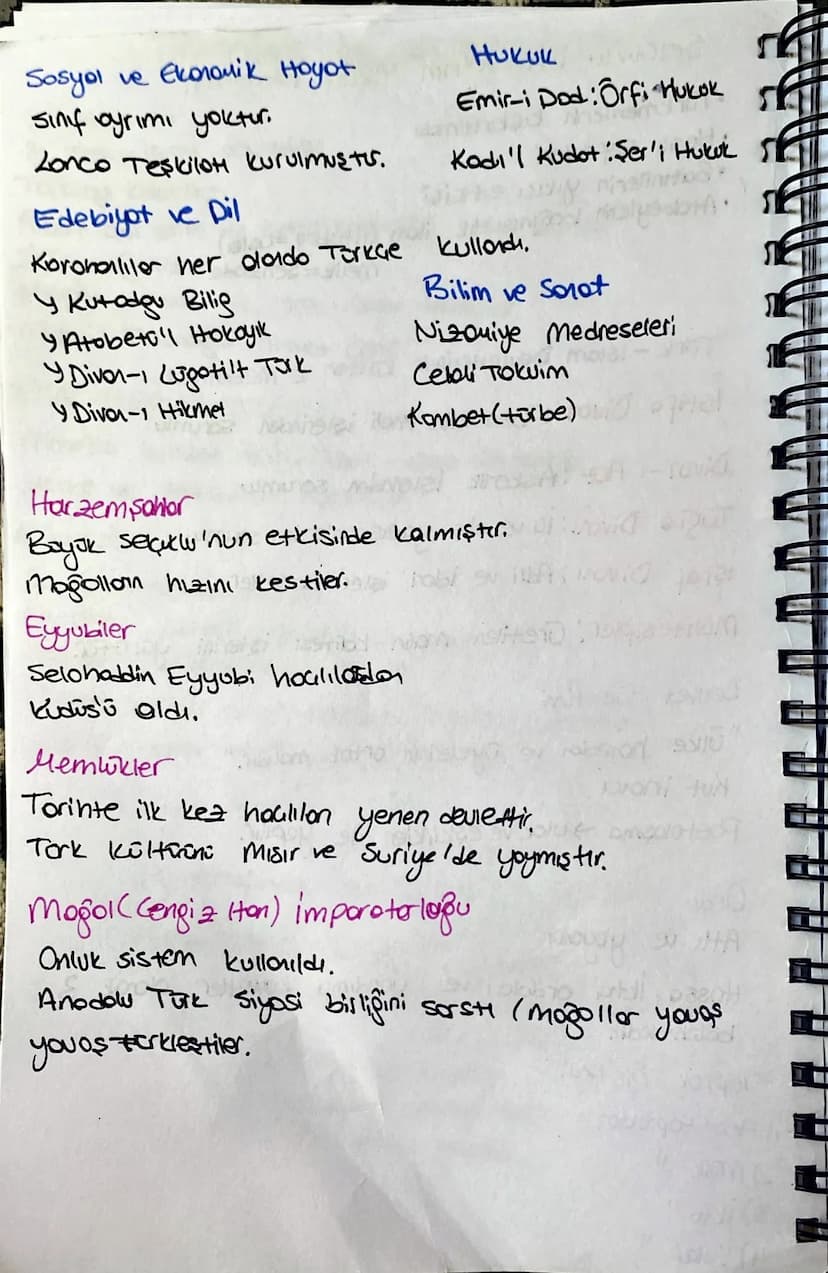 Sosyal ve Ekonomik Hayat
Sınıf ayrımı yoktur.
Lonca Teşkilatı kurulmuştur.
Hukuk
Emir-i Dad: Örfi Hukuk
Kadı'l Kudat: Şer'i Hukuk
Edebiyat ve Dil
Karahanlılar her alanda Türkçe kullandı.
y Kutadgu Bilig
y Atabetü'l Hakayık
y Divan-ı Lügatilt Türk
y Divan-ı Hikmet
Bilim ve Sanat
Nizamiye Medreseleri
Celali Takvim
Kümbet (türbe)
Harzemşahlar
Büyük Selçuklu'nun etkisinde kalmıştır.
Moğolların hızını kestiler.
Eyyubiler
Selahaddin Eyyubi haçlılardan
Kudüs'ü aldı.
Memlükler
Tarihte ilk kez haçlıları yenen devlettir.
Türk kültürünü Mısır ve Suriye'de yaymıştır.
Moğol (Cengiz Han) İmparatorluğu
Onluk sistem kullanıldı.
Anadolu Türk Siyasi birliğini sarstı (Moğollar yavaş
yavaş türkleştiler.